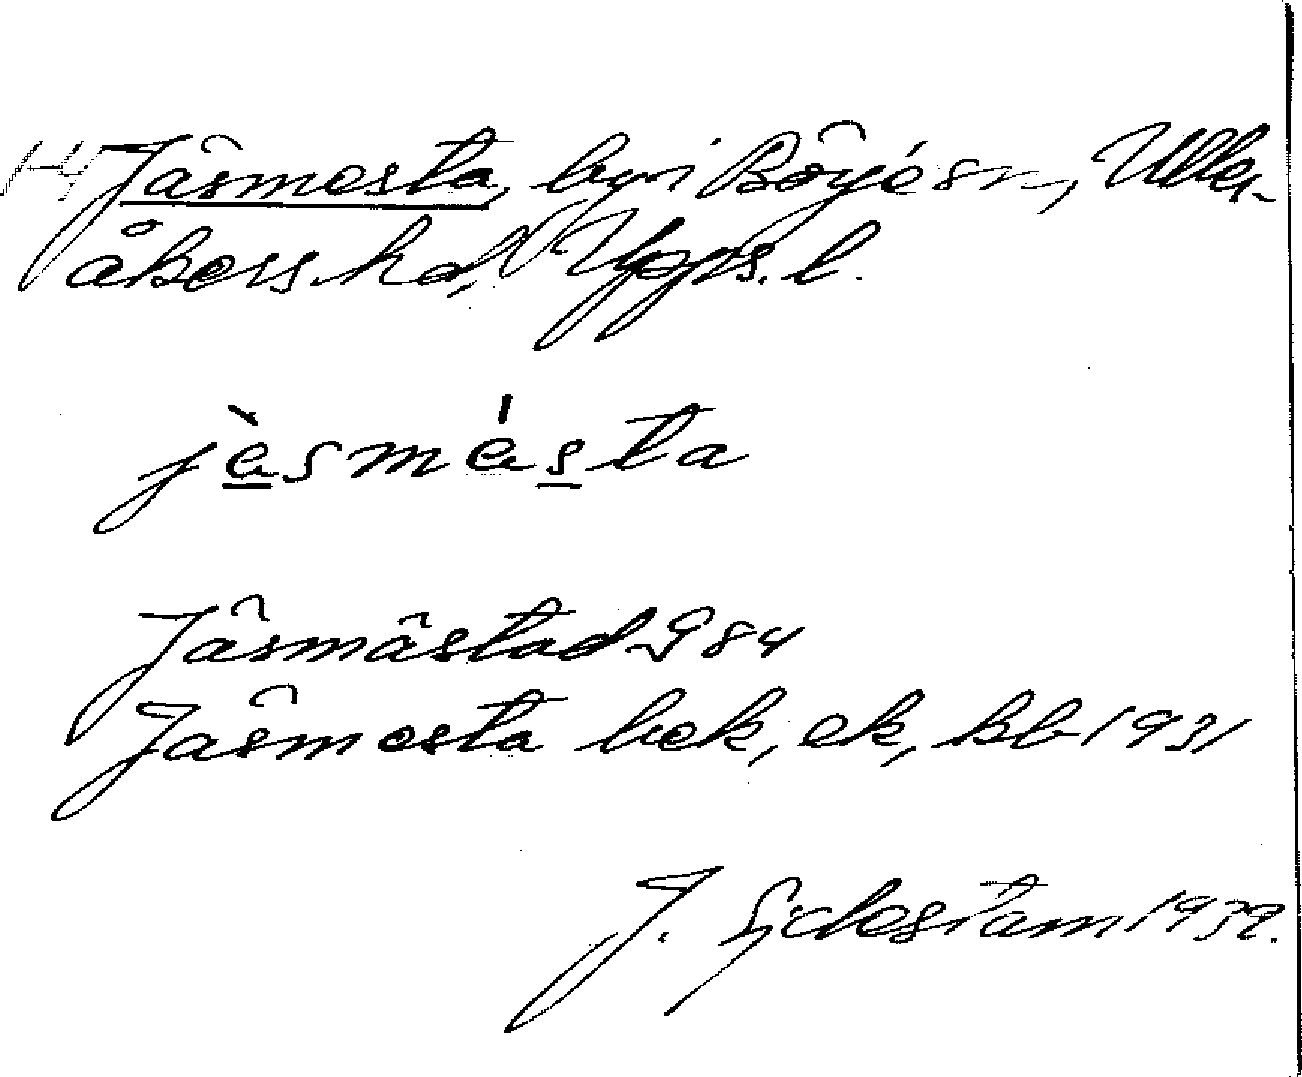 Jäsmesta, by i Börje sn, Uller-
åkers hd, Upps. l.
jèsmésta
Jäsmästad G 84
Jäsmesta bek, ek, kb 1931
J. Sjdestam 1932.